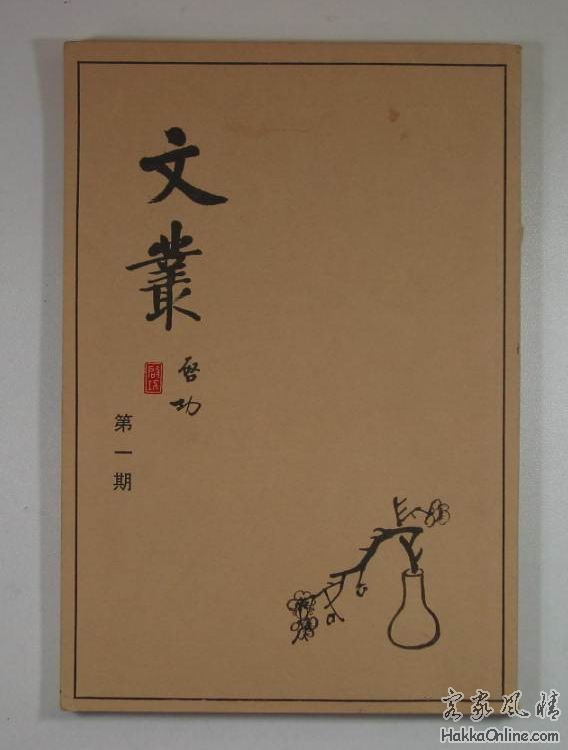 文叢
啓功
啓功
第一期
客家风情
HakkaOnline.com